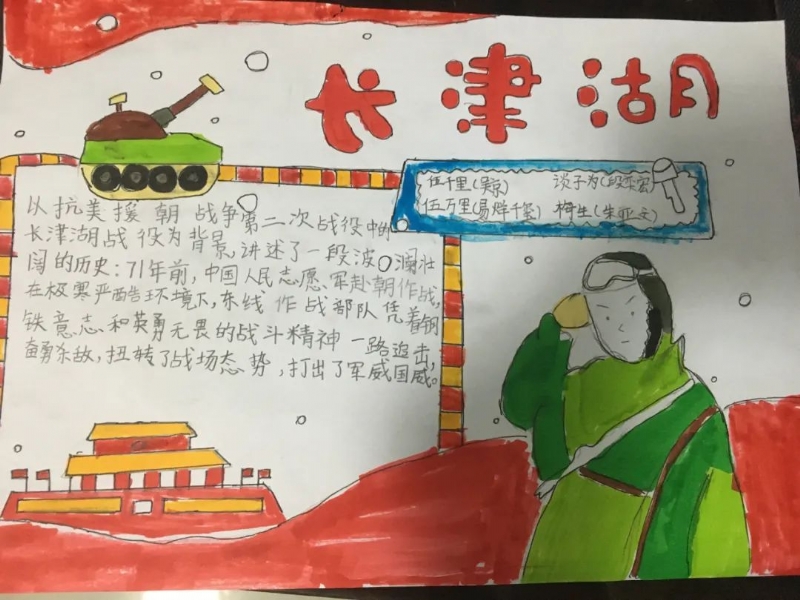 长津湖
伍千里(吴京) 谈子为(段奕宏)
伍万里(易烊千玺) 梅生(朱亚文)
以抗美援朝战争第二次战役中的
长津湖战役为背景,讲述了一段波澜壮
阔的历史:71年前,中国人民志愿军赴朝作战,
在极寒严酷环境下,东线作战部队凭着钢
铁意志和英勇无畏的战斗精神一路追击,
奋勇杀敌,扭转了战场态势,打出了军威国威。